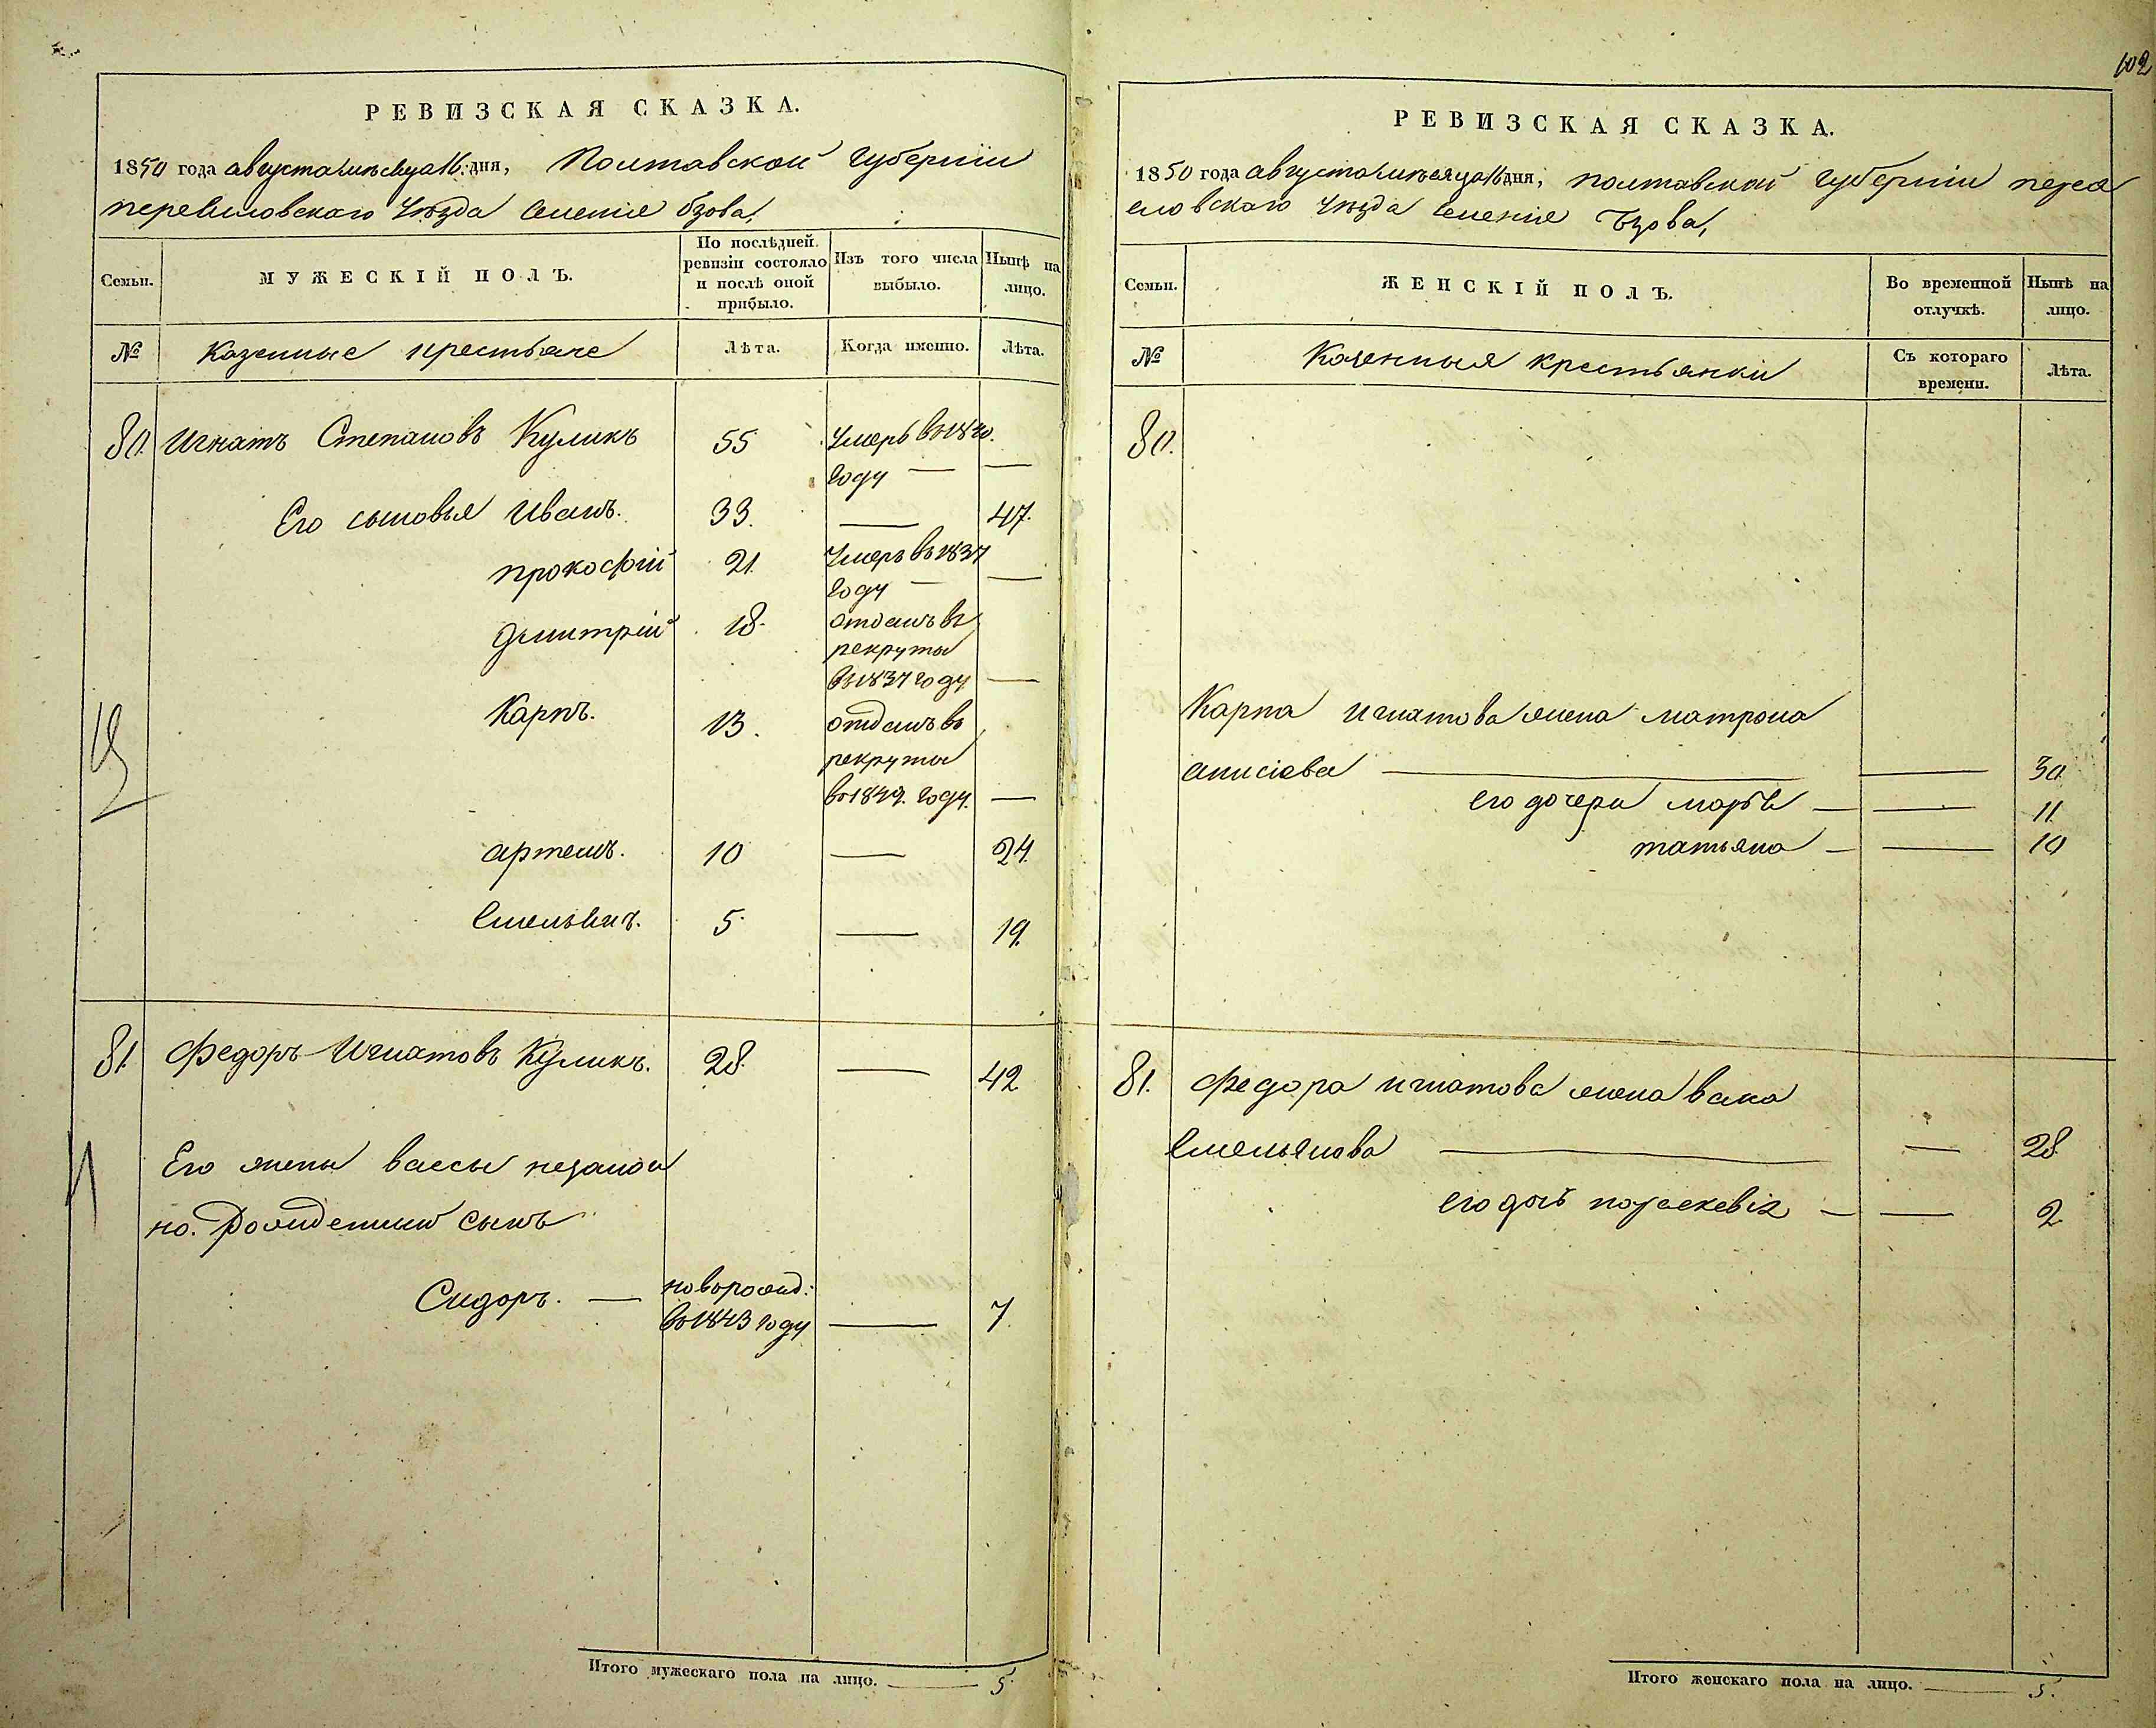 602
РЕВИЗСКАЯ СКАЗКА.
1850 года августа месяца 16. дня, Полтавской губерніи
переяславскаго уѣзда селенія бзова,
Семьи.
МУЖЕСКІЙ ПОЛЪ.
По послѣдней ревизіи состояло и послѣ оной прибыло.
Изъ того числа выбыло.
Нынѣ на лицо.
№
Казенные крестьяне
Лѣта.
Когда именно.
Лѣта.
80. Игнатъ Степановъ Куликъ 55 Умеръ въ 18
году — —
Его сыновья Иванъ. 33. — 47.
прокофій 21. Умеръ въ 1837
году — —
дмитрій 18. отданъ въ
рекруты
въ 1837 году —
Карпъ. 13. отданъ въ
рекруты
въ 1849. году. —
артемъ. 10 — 24.
Емельянъ. 5. — 19.
81. Федоръ Игнатовъ Куликъ. 28. — 42
Его жены вассы незакон
но. рожденный сынъ
Сидоръ. — новорожд:
въ 1843 году — 7.
Итого мужескаго пола на лицо. — 5.
РЕВИЗСКАЯ СКАЗКА.
1850 года августа месяца 16 дня, полтавской губерніи перея
словскаго уѣзда селенія Бзова,
Семьи.
ЖЕНСКІЙ ПОЛЪ.
Во временной отлучкѣ.
Нынѣ на лицо.
№
Казенныя крестьянки
Съ котораго времени.
Лѣта.
80.
Карпа игнатова жена матрона
анисіева — — 30.
его дочери марья — — 11.
татьяна — — 10
81. Федора игнатова жена васа
Емельянова — — 28.
его дочь параскевія — — 2
Итого женскаго пола на лицо. — 5.